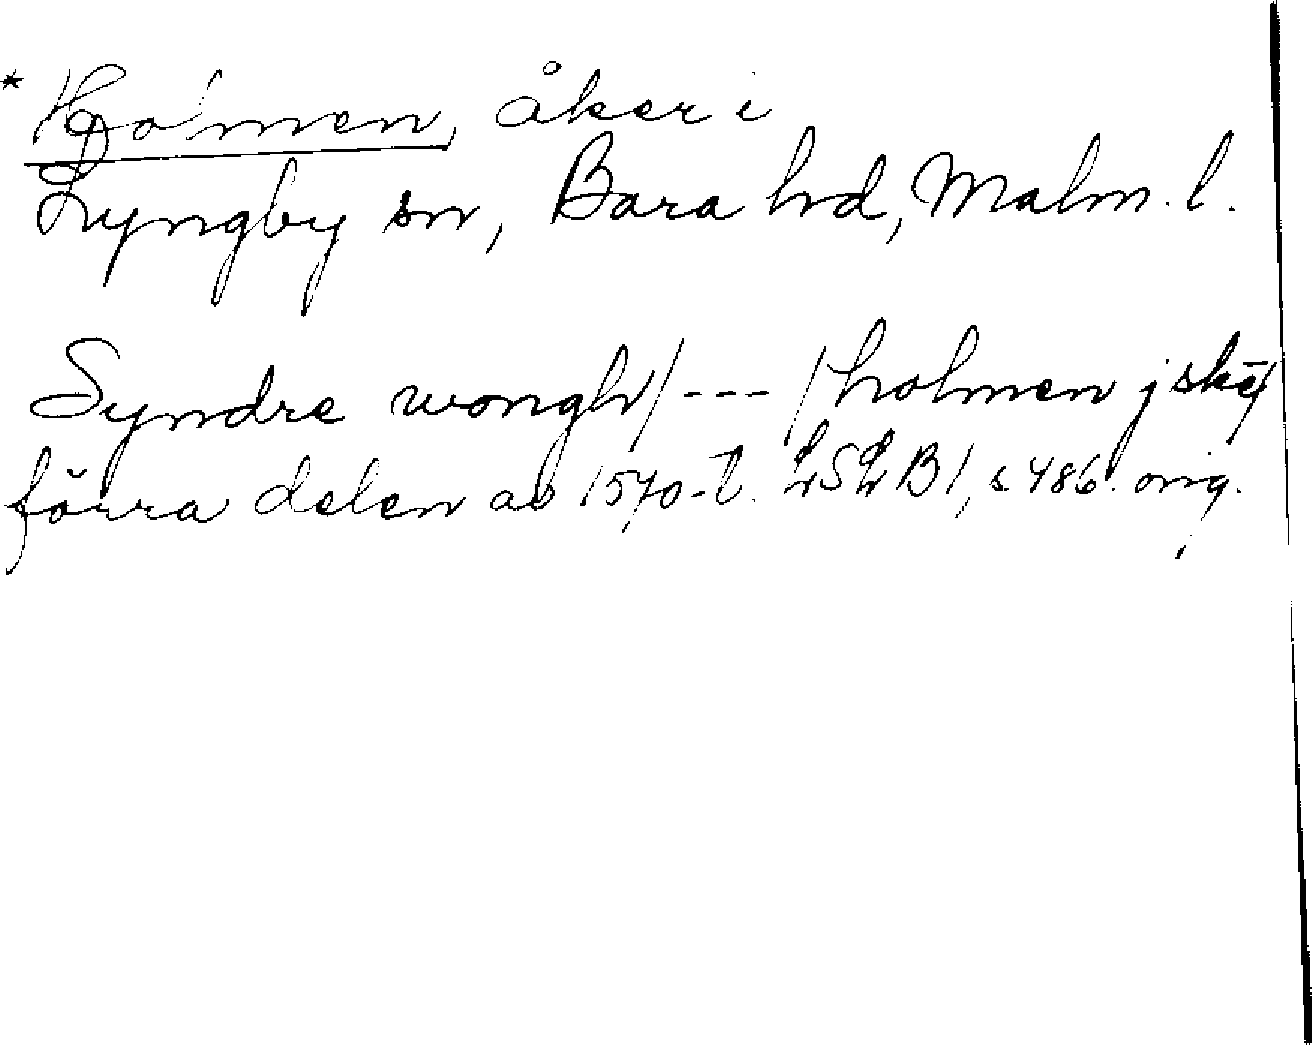 * Holmen, åker i
Lyngby sn, Bara hd, Malm. l.
Syndre wongh/ --- /holmen j skē/
förra delen av 1570-t. LSLB1, s 486. orig.